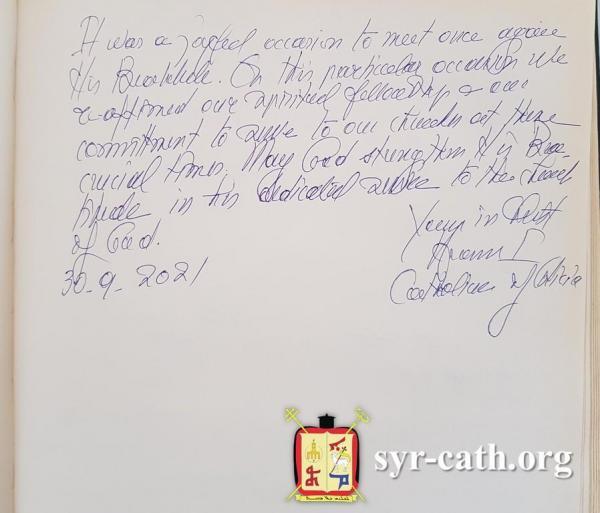 It was a joyful occasion to meet once again
His Beatitude. On this particular occasion we
re-affirmed our spiritual fellowship & our
commitment to serve to our churches at these
crucial times. May God strengthen His Bea-
titude in his dedicated service to the church
of God.
Yours in Christ
30-9-2021
Aram I
Catholicos of Cilicia
syr-cath.org